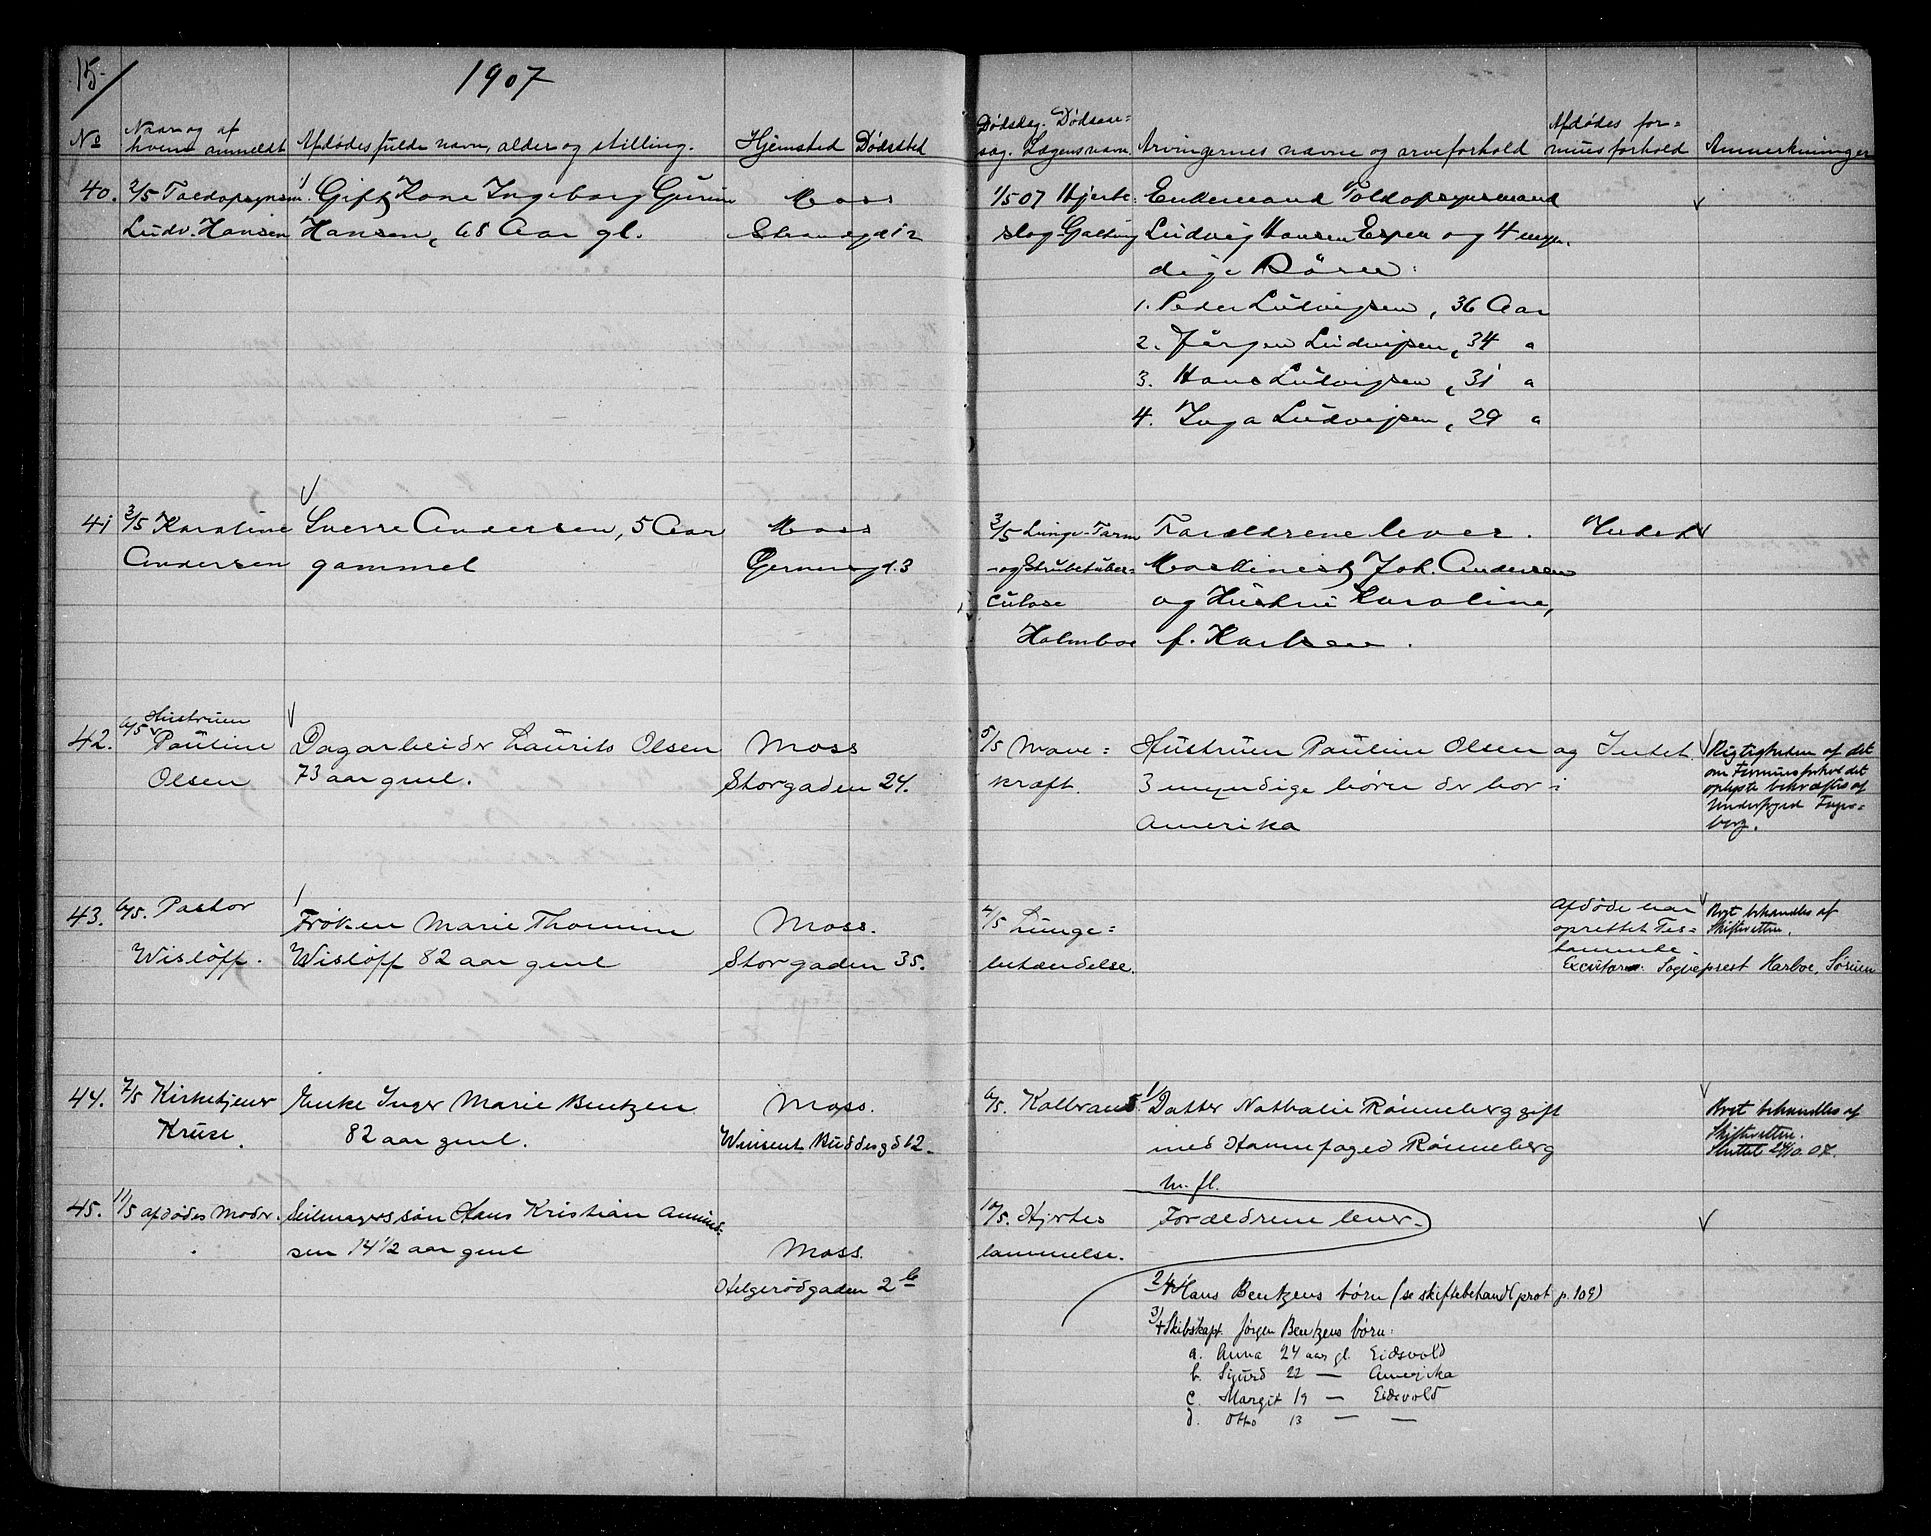 15
1907
No
Naar og af
hvem anmeldt
Afdødes fulde navn, alder og stilling.
Hjemsted
Dødsted
Dødsdag. Dødsaar=
sag. Lægens navn.
Arvingernes navne og arveforhold
Afdødes for=
muesforhold
Anmerkninger
40. 2/5 Toldopsynsm.
Ludv. Hansen
Gift Kone Ingeborg Gurine
Hansen, 68 Aar gl.
Moss
Strandgd 12
1/5 07 Hjerte=
slag Galtung
Enkemand Toldopsynsmand
Ludvig Hansen Espen og 4 myn.
dige Børn:
1. Peder Ludvigsen, 36 Aar
2. Jørgen Ludvigsen, 34 "
3. Hans Ludvigsen, 31 "
4. Inga Ludvigsen, 29 "
41 3/5 Karoline
Andersen
Sverre Andersen, 5 Aar
gammel
Moss
Gernersgd. 3
3/5 Lunge-Tarm
-og Strubetuber=
culose
Holmboe
Forældrene lever.
Maskinist Joh. Andersen
og Hustru Karoline,
f. Karlsen.
Intet
42. 6/5 Hustruen
Pauline
Olsen
Dagarbeider Laurits Olsen
73 aar gml.
Moss
Storgaden 24.
5/5 Mave=
kræft.
Hustruen Pauline Olsen og
3 myndige børn der bor i
Amerika
Intet.
Rigtigheden af det
om Formuesforhol det
oplyste bekræftes af
Underfoged Fugle=
berg.
43. 6/5. Pastor
Wisløff.
Frøken Marie Thomine
Wisløff 82 aar gml
Moss.
Storgaden 35.
4/5 Lunge=
betændelse.
Afdøde har
oprettet Tes=
tamente
Executor: Sogneprest Harboe, Sørum
Boet behandles af
Skifteretten.
44. 7/5 Kirketjener
Kruse.
Enke Inger Marie Bentzen
82 aar gml.
Moss.
Winsent Buddesgd 12.
6/5. Kolbrand.
1/ Datter Nathalie Rønneberg gift
med Havnefoged Rønneberg
m. fl.
Boet behandles af
Skifteretten.
Sluttet 24/10. 07.
45. 11/5 afdødes Moder.
Seilmagerssøn Hans Kristian Amund=
sen 14 1/2 aar gml
Moss.
Helgerødgaden 2 b
10/5. Hjerte
lammelse.
Forældrene lever.
2/ + Hans Bentzens børn (se skiftebehandl prot p. 109)
3/ + Skibskapt. Jørgen Bentzens børn:
a. Anna 24 aar gl. Eidsvold
b. Sigurd 22 — Amerika
c. Margit 19 — Eidsvold
d. Otto 13 — —